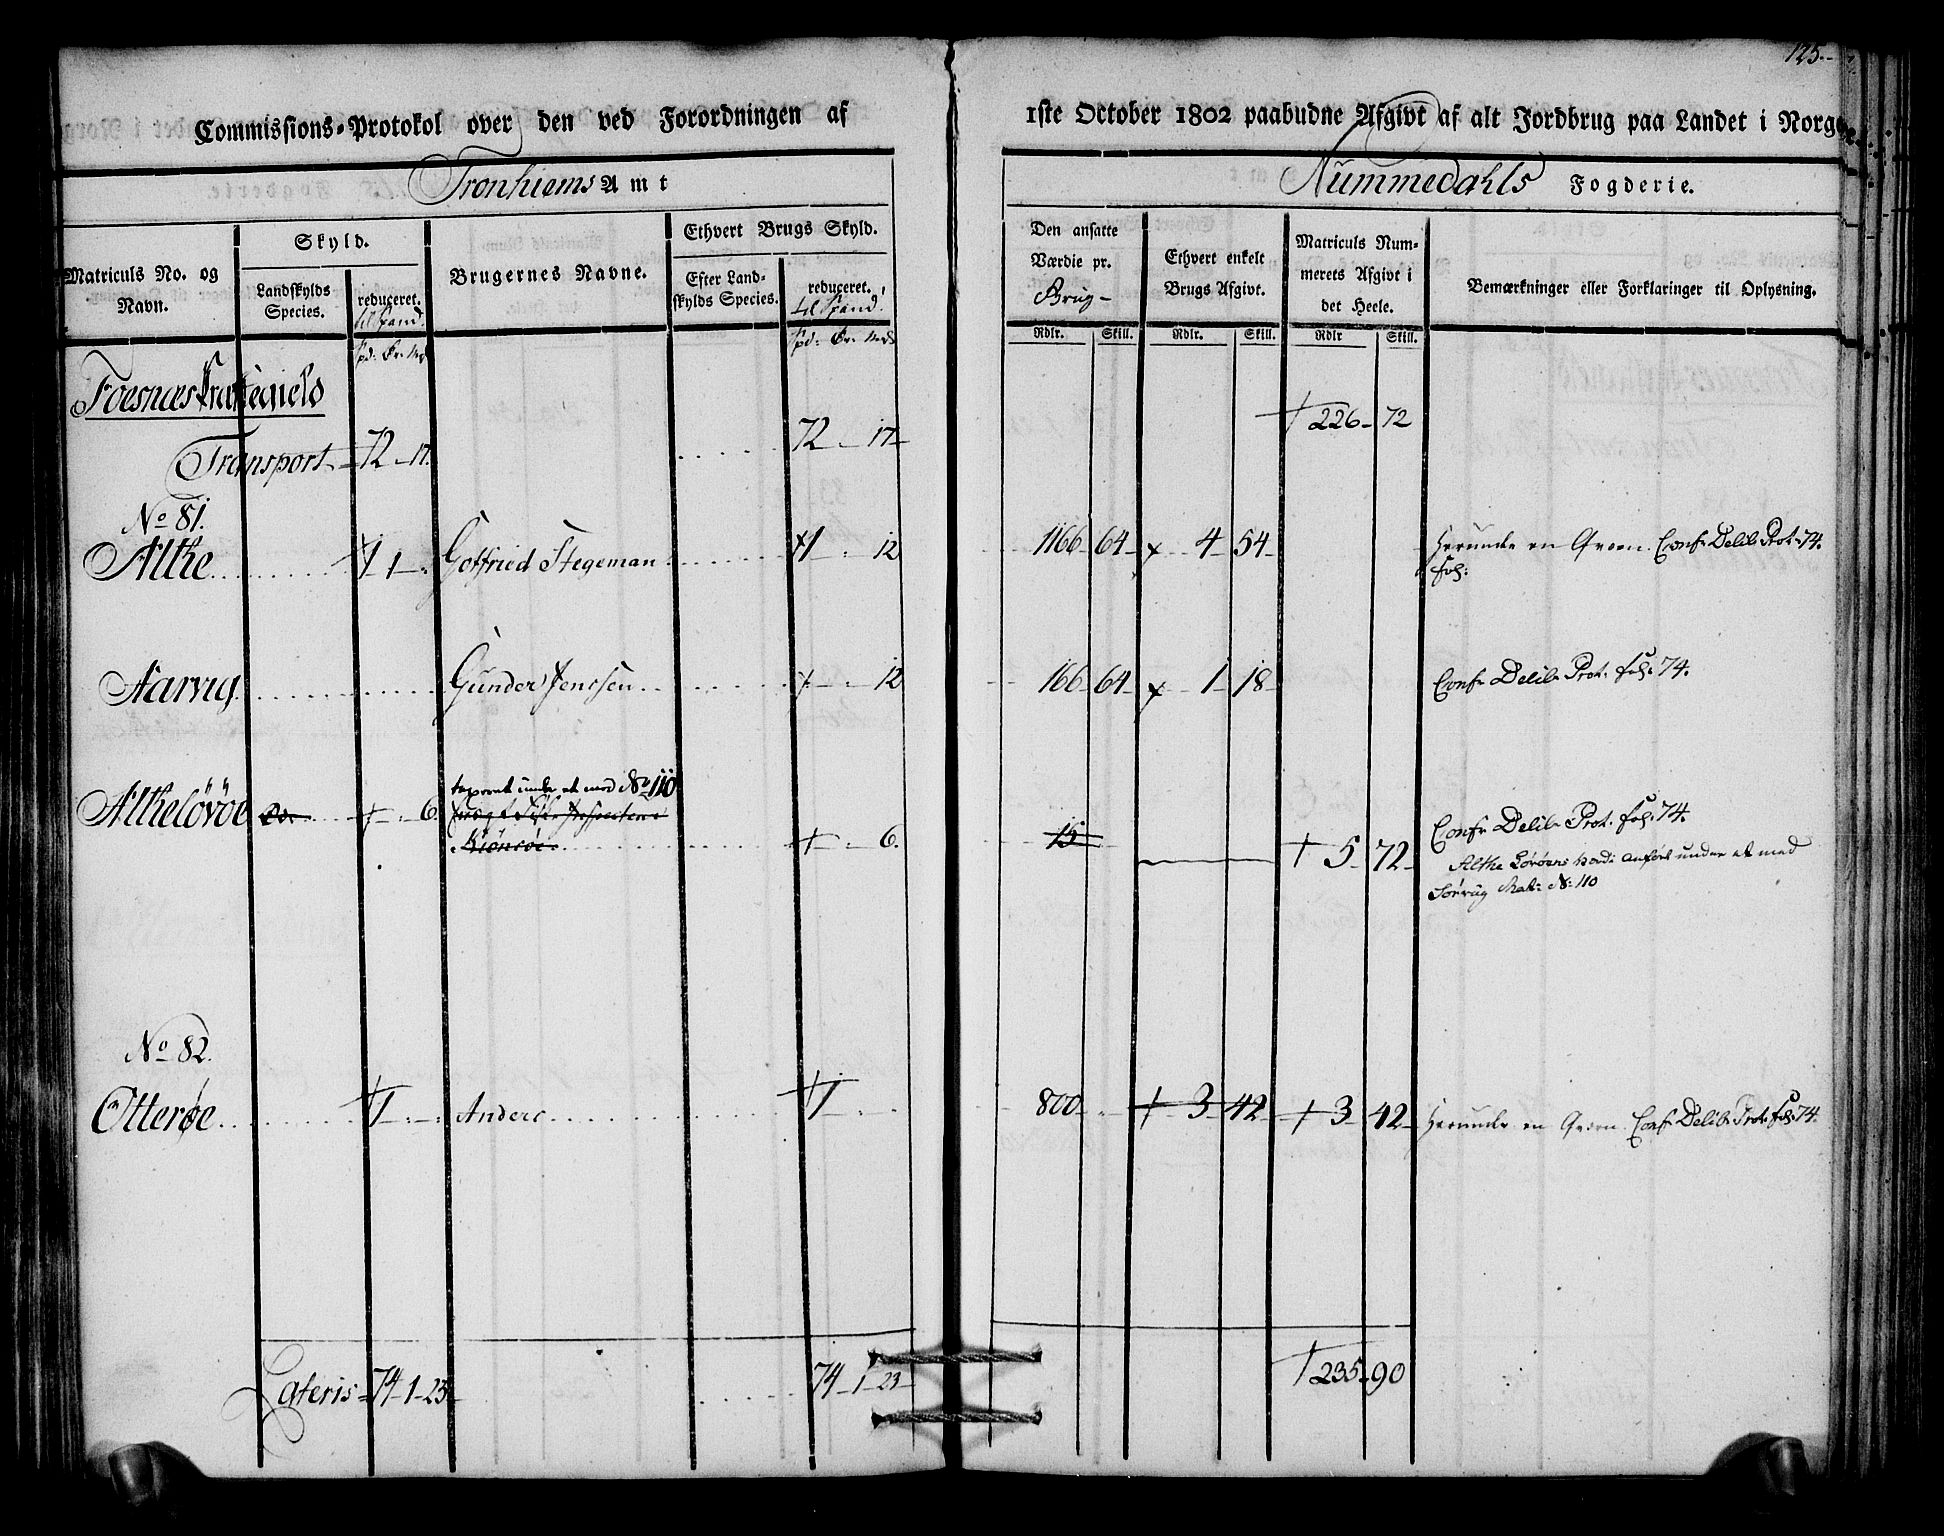 125.
Commissions-Protokol over den ved Forordningen af 1ste October 1802 paabudne Afgivt af alt Jordbrug paa Landet i Norge.
Tronhiems Amt
Nummedahls Fogderie.
Matriculs No. og Navn.
Skyld.
Landskylds Species.
reduceret. til Spand.
Brugernes Navne.
Ethvert Brugs Skyld.
Efter Landskylds Species.
reduceret. til Spand.
Den ansatte Værdie pr. Brug-
Ethvert enkelt Brugs Afgivt.
Matriculs Nummerets Afgivt i det Heele.
Bemærkninger eller Forklaringer til Oplysning.
Spd: Ør: Mrk
Spd: Ør: Mrk
Rdlr. Skill. Rdlr. Skill. Rdlr Skill.
Foesnæs
Transport 72 - 17. 72 - 17 226 - 72
No 81.
Althe 1 1 Gotfried Stegeman 1 - 12 1166 64 4 54 Herunde en Qværn. Conf. Delib. Prot. 74.
fol:
Aarvig Gunder Jenssen 12 166 64 1 18 Conf. Delib. Prot. fol. 74.
under et med No 110
Altheløvøe 6. 6. 15 5 72 Conf. Delib. Prot. fol. 74.
Althe Løvøens anført under et med
No 110
No 82.
Otterøe 1 Anders 1 800 3 42 3 42 Herunde en Qværn. Conf. Delib. Prot. fol. 74.
Lateris 74 - 1 - 23 74 - 1 - 23 235 - 90